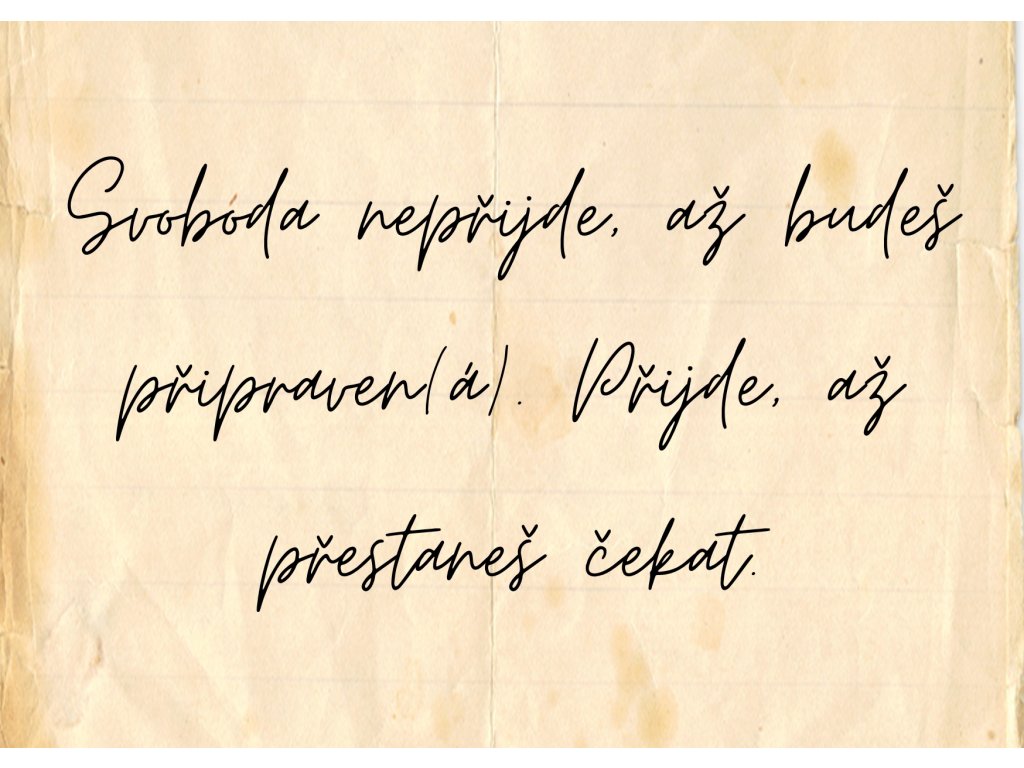 Svoboda nepřijde, až budeš
připraven(á). Přijde, až
přestaneš čekat.